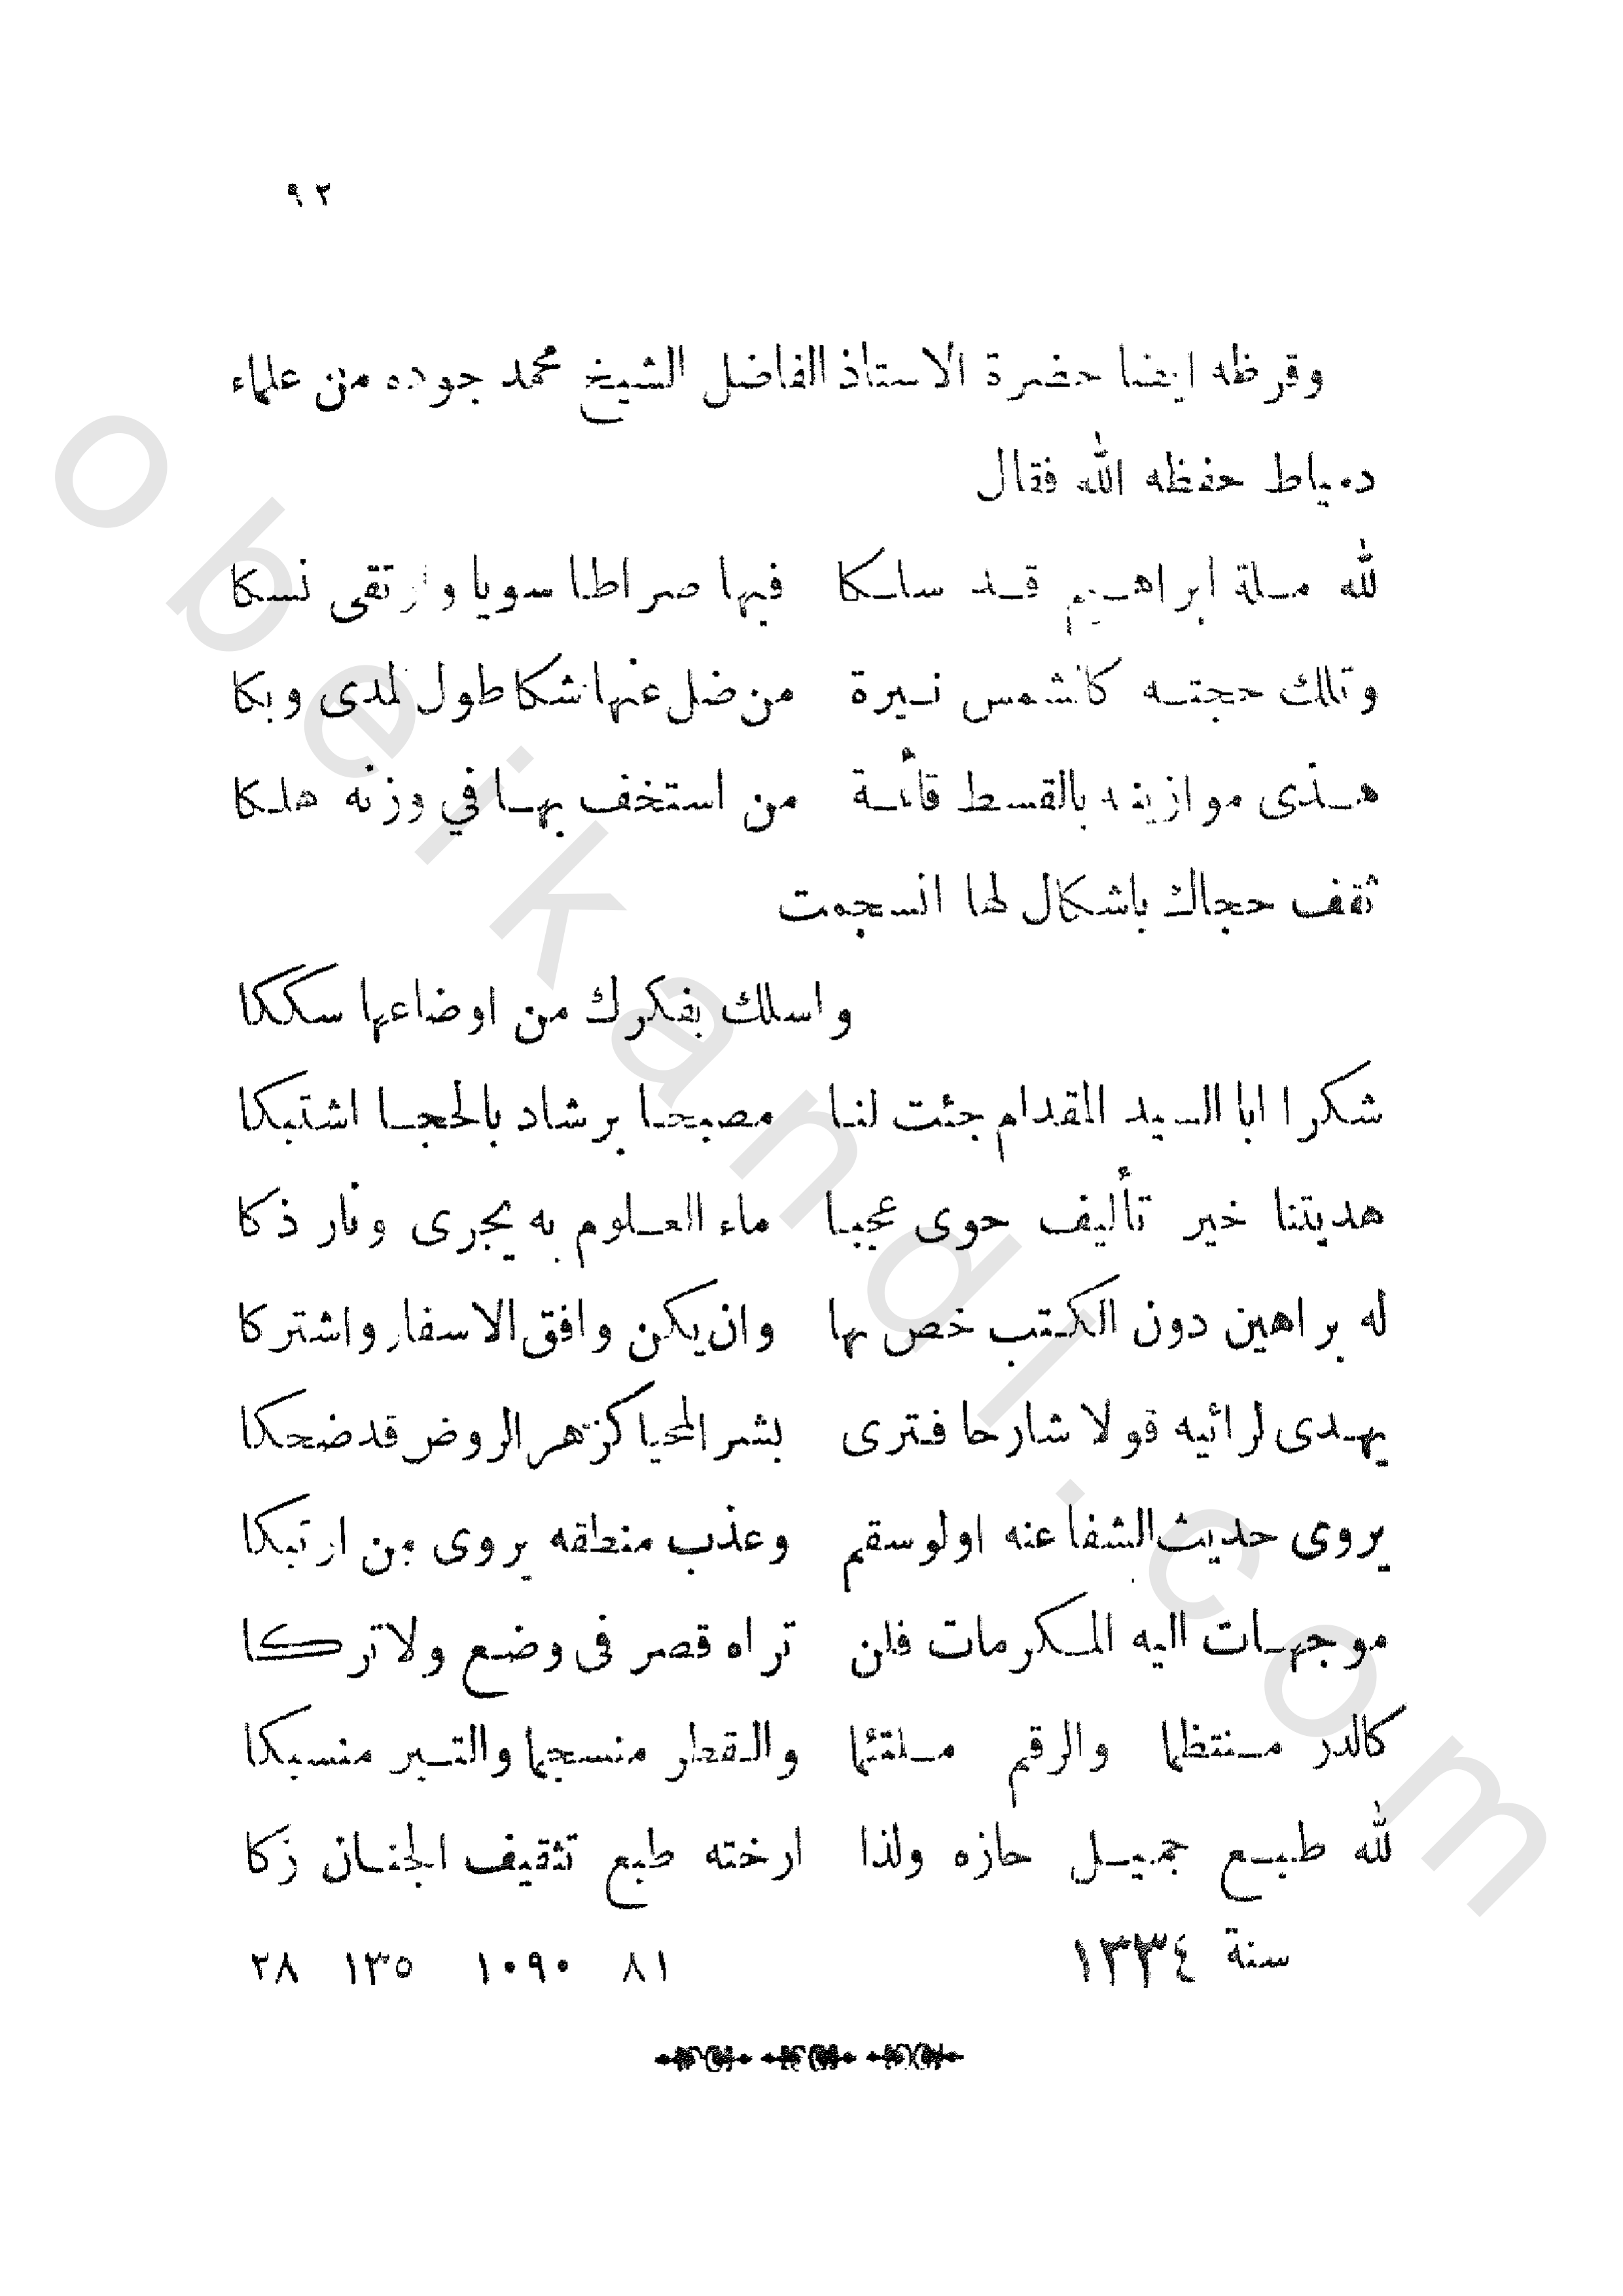 ٩٢
وقرظه ايضا حضرة الاستاذ الفاضل الشيخ محمد جوده من علماء
دمياط حفظه الله فقال
لله ملة ابراهيم قد سلكا فيها صراطا سويا وارتقى نسكا
وتلك حجته كالشمس نيرة من ضل عنها شكا طول المدى وبكا
هذى موازينه بالقسط قائمة من استخف بها في وزنه هلكا
ثقف حجاك باشكال لها انسجمت
واسلك بفكرك من اوضاعها سككا
شكرا ابا السيد المقدام جئت لنا مصبحا برشاد بالحجا اشتبكا
هديتنا خير تأليف حوى عجبا ماء العلوم به يجرى ونار ذكا
له براهين دون الكتب خص بها وان يكن وافق الاسفار واشتركا
يهدى لرائيه قولا شارحا فترى بشر المحيا كزهر الروض قد ضحكا
يروى حديث الشفا عنه اولو سقم وعذب منطقه يروى من ارتبكا
موجهات اليه المكرمات فلن تراه قصر فى وضع ولا تركا
كالدر منتظما والرقم ملتئما والقطر منسجما والتبر منسبكا
لله طبع جميل حازه ولذا ارخته طبع تثقيف الجنان زكا
سنة ١٣٣٤ ٨١ ١٠٩٠ ١٣٥ ٢٨
obeikandl.com